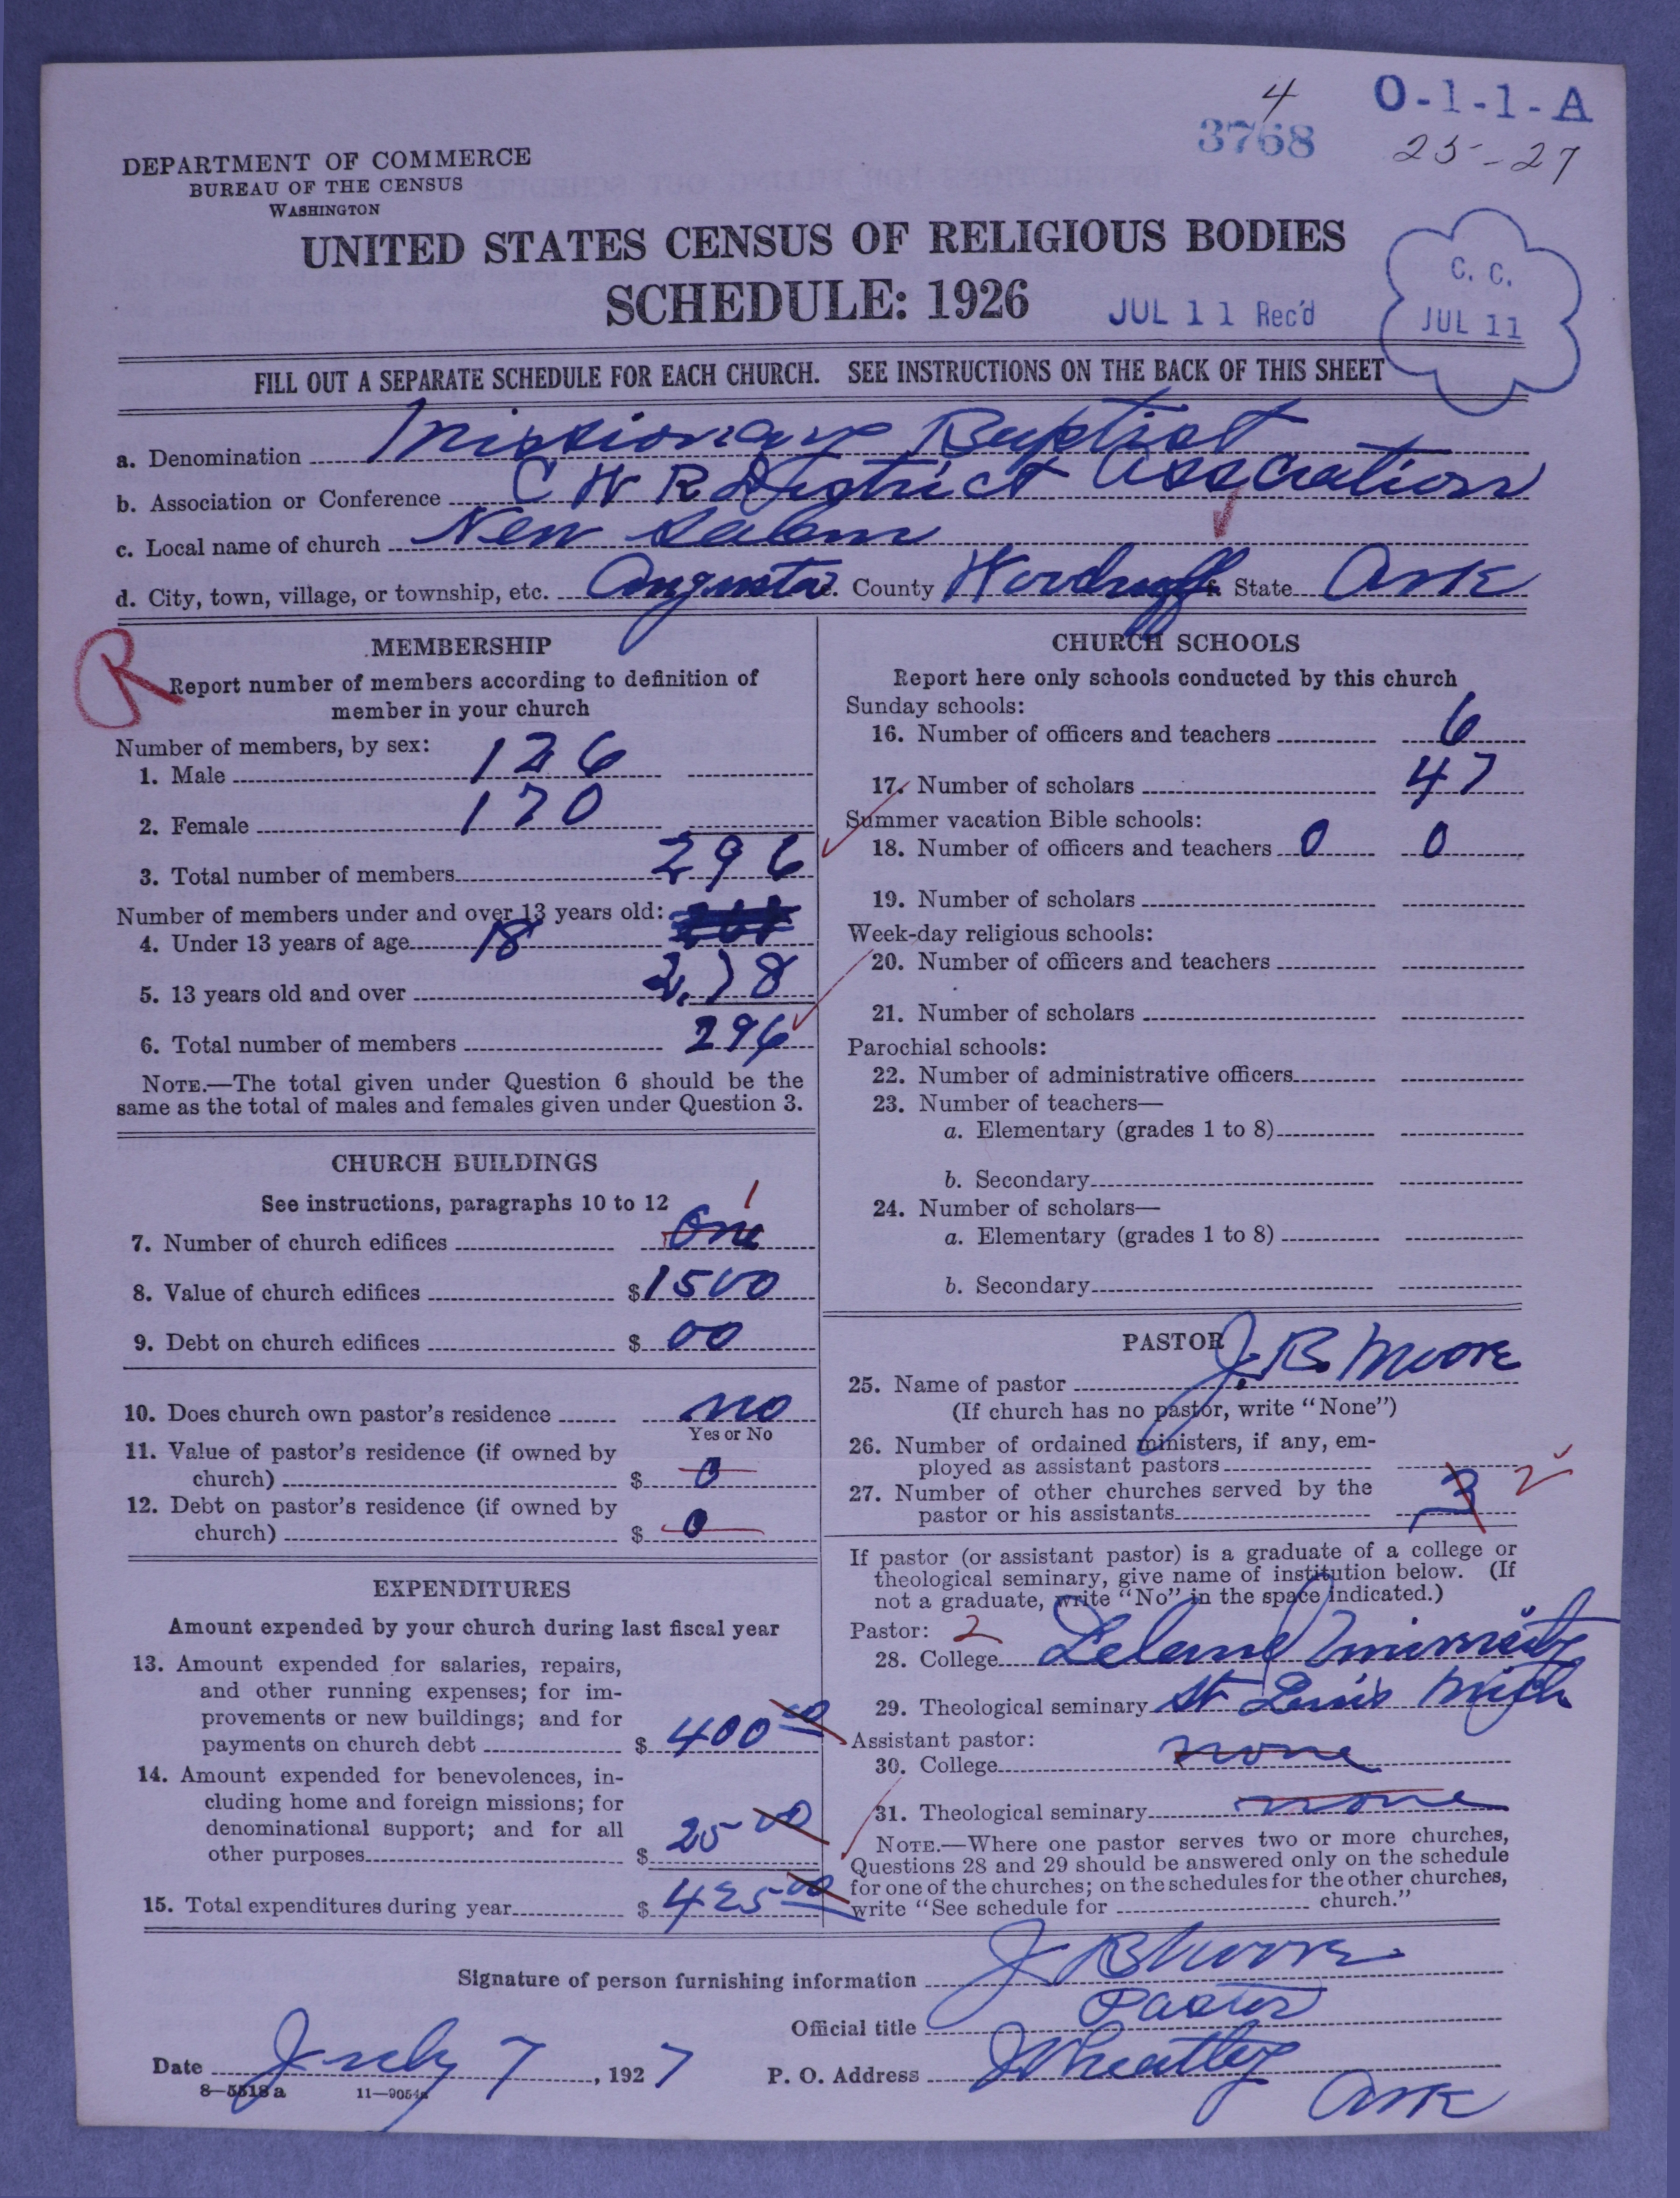 4
O-1-1-A
3768
25-27
DEPARTMENT OF COMMERCE
BUREAU OF THE CENSUS
WASHINGTON
UNITED STATES CENSUS OF RELIGIOUS BODIES
SCHEDULE: 1926
JUL 11 Rec'd
C. C.
JUL 11
FILL OUT A SEPARATE SCHEDULE FOR EACH CHURCH. SEE INSTRUCTIONS ON THE BACK OF THIS SHEET
a. Denomination Missionary Baptist
b. Association or Conference C W R District Association
c. Local name of church New Salem
d. City, town, village, or township, etc. Augusta County Woodruff State Ark
R
MEMBERSHIP
Report number of members according to definition of
member in your church
Number of members, by sex:
1. Male 126
2. Female 170
3. Total number of members 296
Number of members under and over 13 years old:
4. Under 13 years of age 18
5. 13 years old and over 278
6. Total number of members 296
NOTE.—The total given under Question 6 should be the
same as the total of males and females given under Question 3.
CHURCH BUILDINGS
See instructions, paragraphs 10 to 12
7. Number of church edifices One 1
8. Value of church edifices $1500
9. Debt on church edifices $ 00
10. Does church own pastor's residence no
Yes or No
11. Value of pastor's residence (if owned by
church) $ 0
12. Debt on pastor's residence (if owned by
church) $ 0
EXPENDITURES
Amount expended by your church during last fiscal year
13. Amount expended for salaries, repairs,
and other running expenses; for im-
provements or new buildings; and for
payments on church debt $ 400 00
14. Amount expended for benevolences, in-
cluding home and foreign missions; for
denominational support; and for all
other purposes $ 25 00
15. Total expenditures during year $ 425 00
CHURCH SCHOOLS
Report here only schools conducted by this church
Sunday schools:
16. Number of officers and teachers 6
17. Number of scholars 47
Summer vacation Bible schools:
18. Number of officers and teachers 0 0
19. Number of scholars
Week-day religious schools:
20. Number of officers and teachers
21. Number of scholars
Parochial schools:
22. Number of administrative officers
23. Number of teachers—
a. Elementary (grades 1 to 8)
b. Secondary
24. Number of scholars—
a. Elementary (grades 1 to 8)
b. Secondary
PASTOR
25. Name of pastor J. B. Moore
(If church has no pastor, write "None")
26. Number of ordained ministers, if any, em-
ployed as assistant pastors
27. Number of other churches served by the
pastor or his assistants 3 2
If pastor (or assistant pastor) is a graduate of a college or
theological seminary, give name of institution below. (If
not a graduate, write "No" in the space indicated.)
Pastor: 2
28. College Leland University
29. Theological seminary St Louis Mich
Assistant pastor:
30. College none
31. Theological seminary none
NOTE.—Where one pastor serves two or more churches,
Questions 28 and 29 should be answered only on the schedule
for one of the churches; on the schedules for the other churches,
write "See schedule for church."
Signature of person furnishing information J B Moore
Official title Pastor
Date July 7, 1927 P. O. Address Wheatley
Ark
8—5518 a 11—9054a